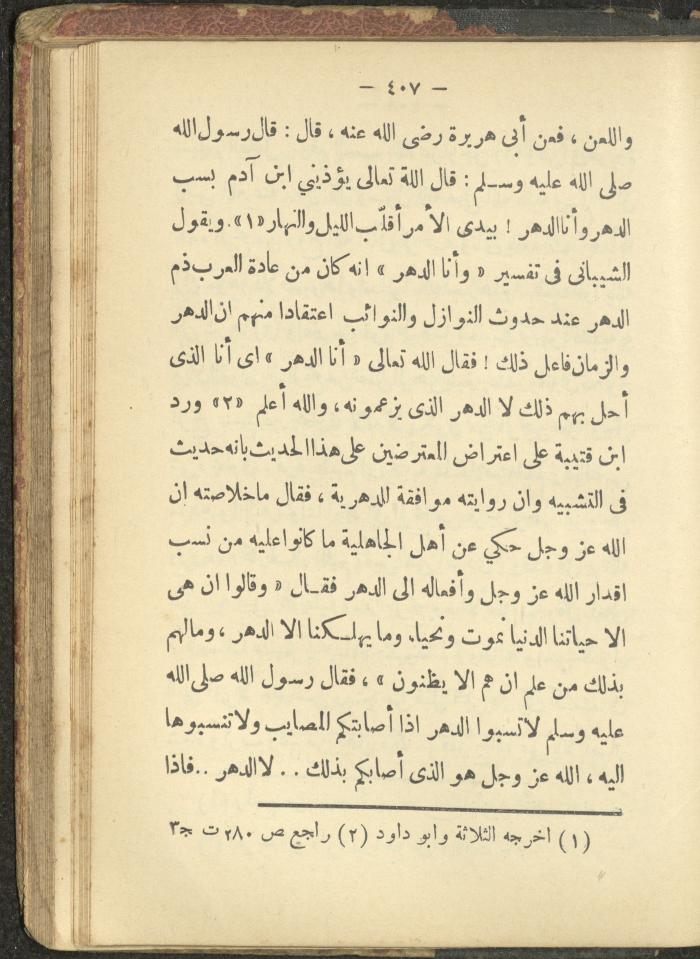 — ٤٠٧ —
واللعن ، فعن أبى هريرة رضى الله عنه ، قال : قال رسول الله
صلى الله عليه وسلم : قال اللة تعالى يؤذيني ابن آدم بسب
الدهر وأنا الدهر ! بيدى الأمر أقلّب الليل والنهار «١». ويقول
الشيبانى فى تفسير « وأنا الدهر » انه كان من عادة العرب ذم
الدهر عند حدوث النوازل والنوائب اعتقادا منهم ان الدهر
والزمان فاعل ذلك ! فقال الله تعالى « أنا الدهر » اى أنا الذى
أحل بهم ذلك لا الدهر الذى يزعمونه ، والله أعلم «٢» ورد
ابن قتيبة على اعتراض المعترضين على هذا الحديث بانه حديث
فى التشبيه وان روايته موافقة للدهرية ، فقال ماخلاصته ان
الله عز وجل حكي عن أهل الجاهلية ما كانوا عليه من نسب
اقدار الله عز وجل وأفعاله الى الدهر فقال « وقالوا ان هى
الا حياتنا الدنيا نموت ونحيا، وما يهلكنا الا الدهر ، ومالهم
بذلك من علم ان هم الا يظنون » ، فقال رسول الله صلى الله
عليه وسلم لاتسبوا الدهر اذا أصابتكم المصايب ولا تنسبوها
اليه ، الله عز وجل هو الذى أصابكم بذلك . . لا الدهر . . فاذا
(١) اخرجه الثلاثة وابو داود (٢) راجع ص ٢٨٠ ت ج٣